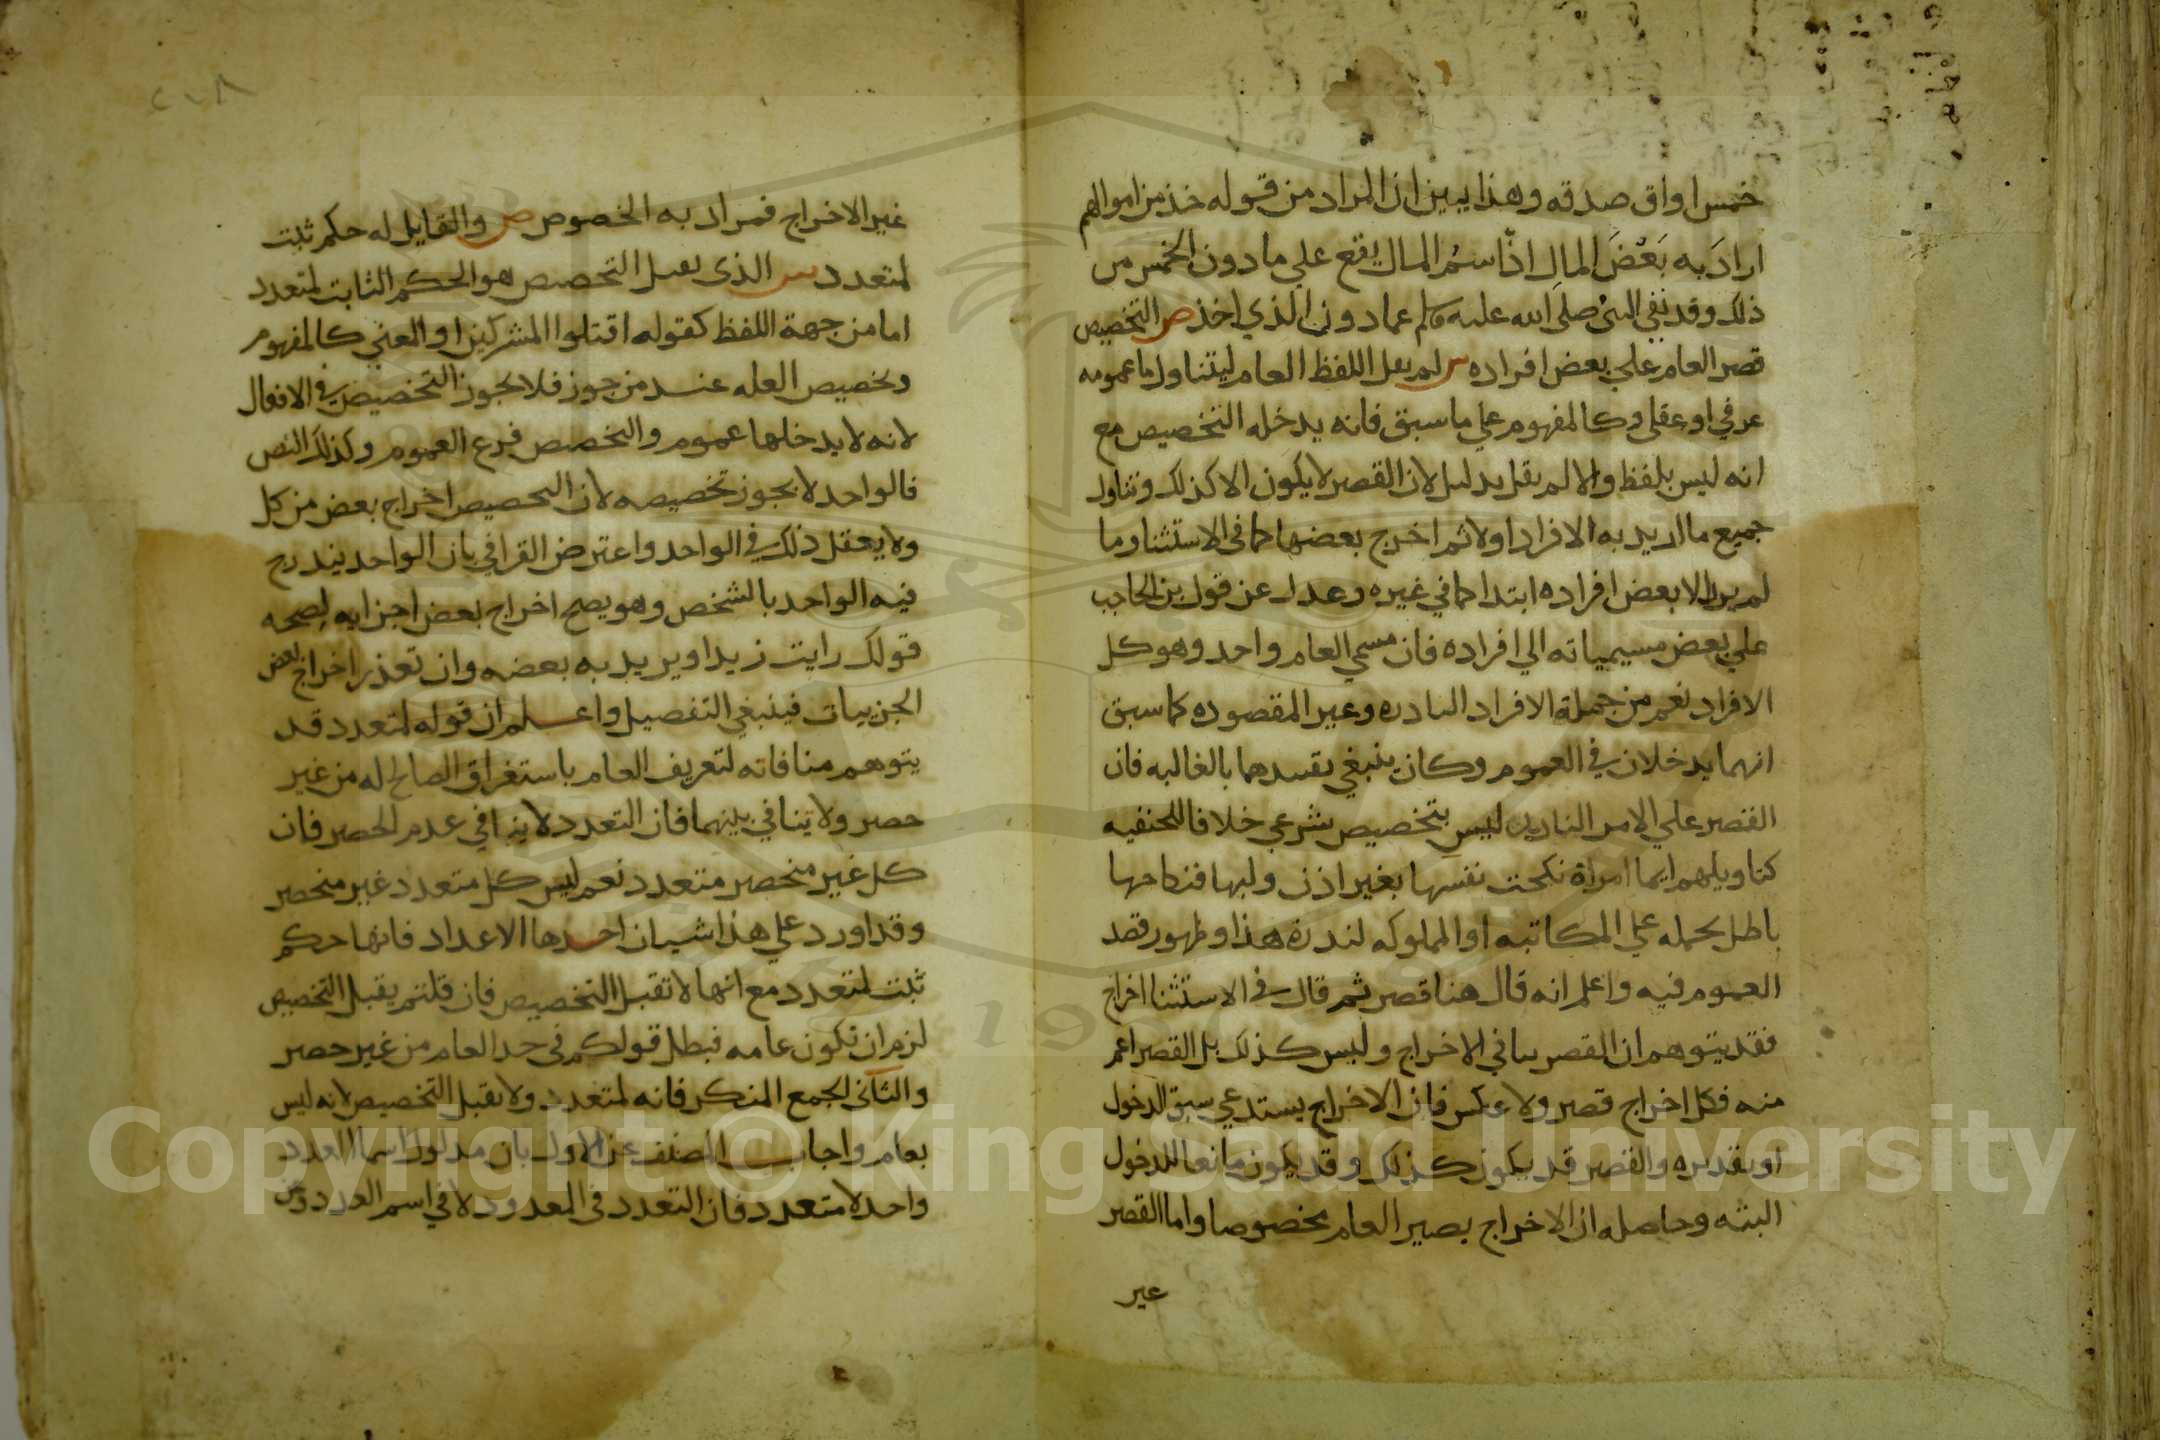 خمس اواق صدقه وهذا يبين ان المراد من قوله خذ من اموالهم
ارادَ به بَعْضَ المالِ اذ اسمُ المال يقع علي ما دون الخمس من
ذلك وقد نفي النبي صلى الله عليه وسلم عما دون الذي اخذ ص التخصيص
قصر العام علي بعض افراده ش لم يقل اللفظ العام ليتناول ما عمومه
عرفي او عقلي وكالمفهوم علي ما سبق فانه يدخله التخصيص مع
انه ليس بلفظ والا لم يقل بدليل لان القصر لا يكون الا كذلك وتناول
جميع ما اريد به الافراد اولا ثم اخرج بعضها كما في الاستثنا وما
لم يرد الا بعض افراده ابتدا كما في غيره وعدل عن قول بن الحاجب
علي بعض مسيمياته الي افراده فان مسمي العام واحد وهو كل
الافراد نعم من جملة الافراد النادره وغير المقصوده كما سبق
انهما يدخلان في العموم وكان ينبغي تقييدهما بالغالبه فان
القصر علي الامر النادر ليس بتخصيص شرعي خلافا للحنفيه
كتاويلهم ايما امراة نكحت نفسها بغير اذن وليها فنكاحها
باطل بحمله علي المكاتبه او المملوكه لندرة هذا وظهور قصد
العموم فيه واعلم انه قال هنا قصر ثم قال في الاستثنا اخراج
فقد يتوهم ان القصر ينافي الاخراج وليس كذلك بل القصر اعم
منه فكل اخراج قصر ولا عكس فان الاخراج يستدعي سبق الدخول
او تقديره والقصر قد يكون كذلك وقد يكون مانعا للدخول
البته وحاصله ان الاخراج يصير العام مخصوصا واما القصر
غير
٢١٨
غير الاخراج فمراد به الخصوص ص والقابل له حكم ثبت
لمتعدد ش الذي يقبل التخصيص هو الحكم الثابت لمتعدد
اما من جهة اللفظ كقوله اقتلوا المشركين او المعني كالمفهوم
وتخصيص العله عند من جوز فلا يجوز التخصيص في الافعال
لانه لا يدخلها عموم والتخصيص فرع العموم وكذلك النص
فالواحد لا يجوز تخصيصه لان التخصيص اخراج بعض من كل
ولا يعقل ذلك في الواحد واعترض القرافي بان الواحد يندرج
فيه الواحد بالشخص وهو يصح اخراج بعض اجزايه لصحه
قولك رايت زيدا ويريد به بعضه وان تعذر اخراج بعض
الجزييات فينبغي التفصيل واعلم ان قوله لمتعدد قد
يتوهم منافاته لتعريف العام باستغراق الصالح له من غير
حصر ولا تنافي بينهما فان التعدد لا ينافي عدم الحصر فان
كل غير منحصر متعدد نعم ليس كل متعدد غير منحصر
وقد اورد علي هذا شيان احدها الاعداد فانها حكم
ثبت لمتعدد مع انها لا تقبل التخصيص فان قلتم يقبل التخصيص
لزم ان تكون عامه فبطل قولكم في حد العام من غير حصر
والثاني الجمع المنكر فانه لمتعدد ولا يقبل التخصيص لانه ليس
بعام واجاب المصنف عن الاول بان مدلول اسما العدد
واحد لا متعدد فان التعدد في المعدود لا في اسم العدد وعن
Copyright © King Saud University